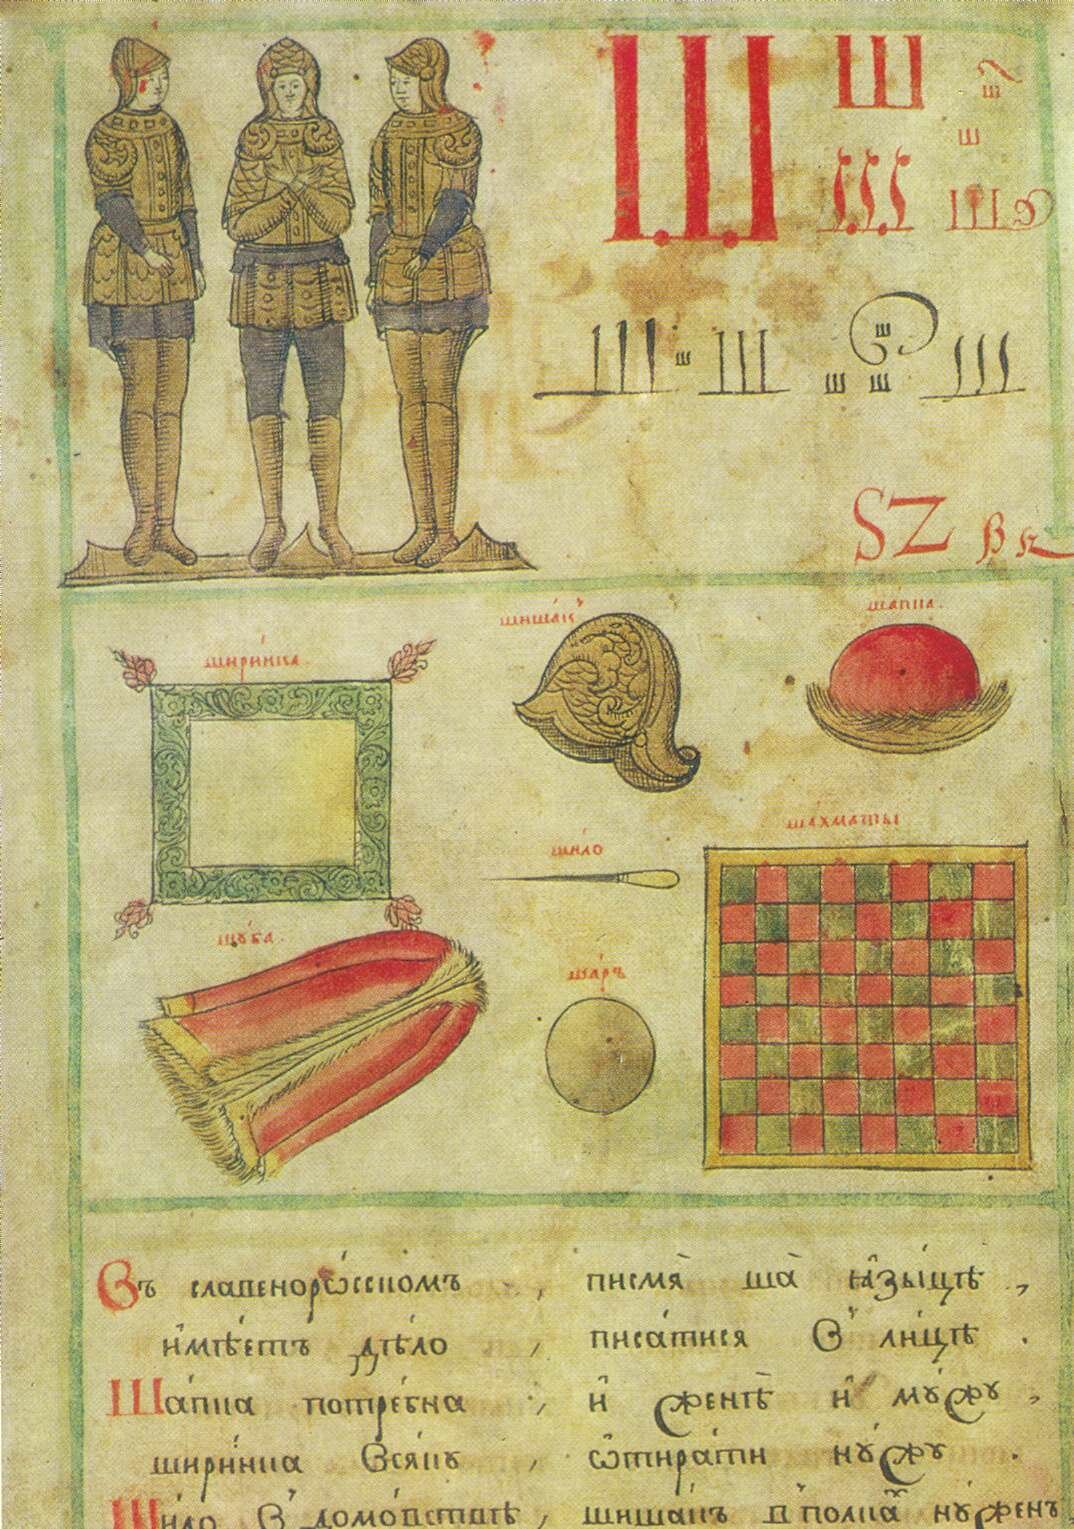 Ш Ш ш
ш
Ш Ш
Ш ш Ш ш Ш
ш ш
SZ
ши́ринка
шиша́къ
ша́пка.
ши́ло
ша́хматы
шу́ба.
ша́ръ
Въ славеноро́ссїйскомъ , писмя̀ ша̀ ꙗ҆зы́цѣ ,
и҆мѣ́етъ дѣ́ло , писа́тися в̾ ли́цѣ .
Ша́пка потре́бна , и҆ женѣ̀ и҆ мꙋ́жꙋ ,
шири́нка всякꙋ , ѿтира́ти нꙋ́жꙋ .
Ши́ло в̾ домо́вствѣ , шиша́къ в̾ полка̀ нꙋ́женъ